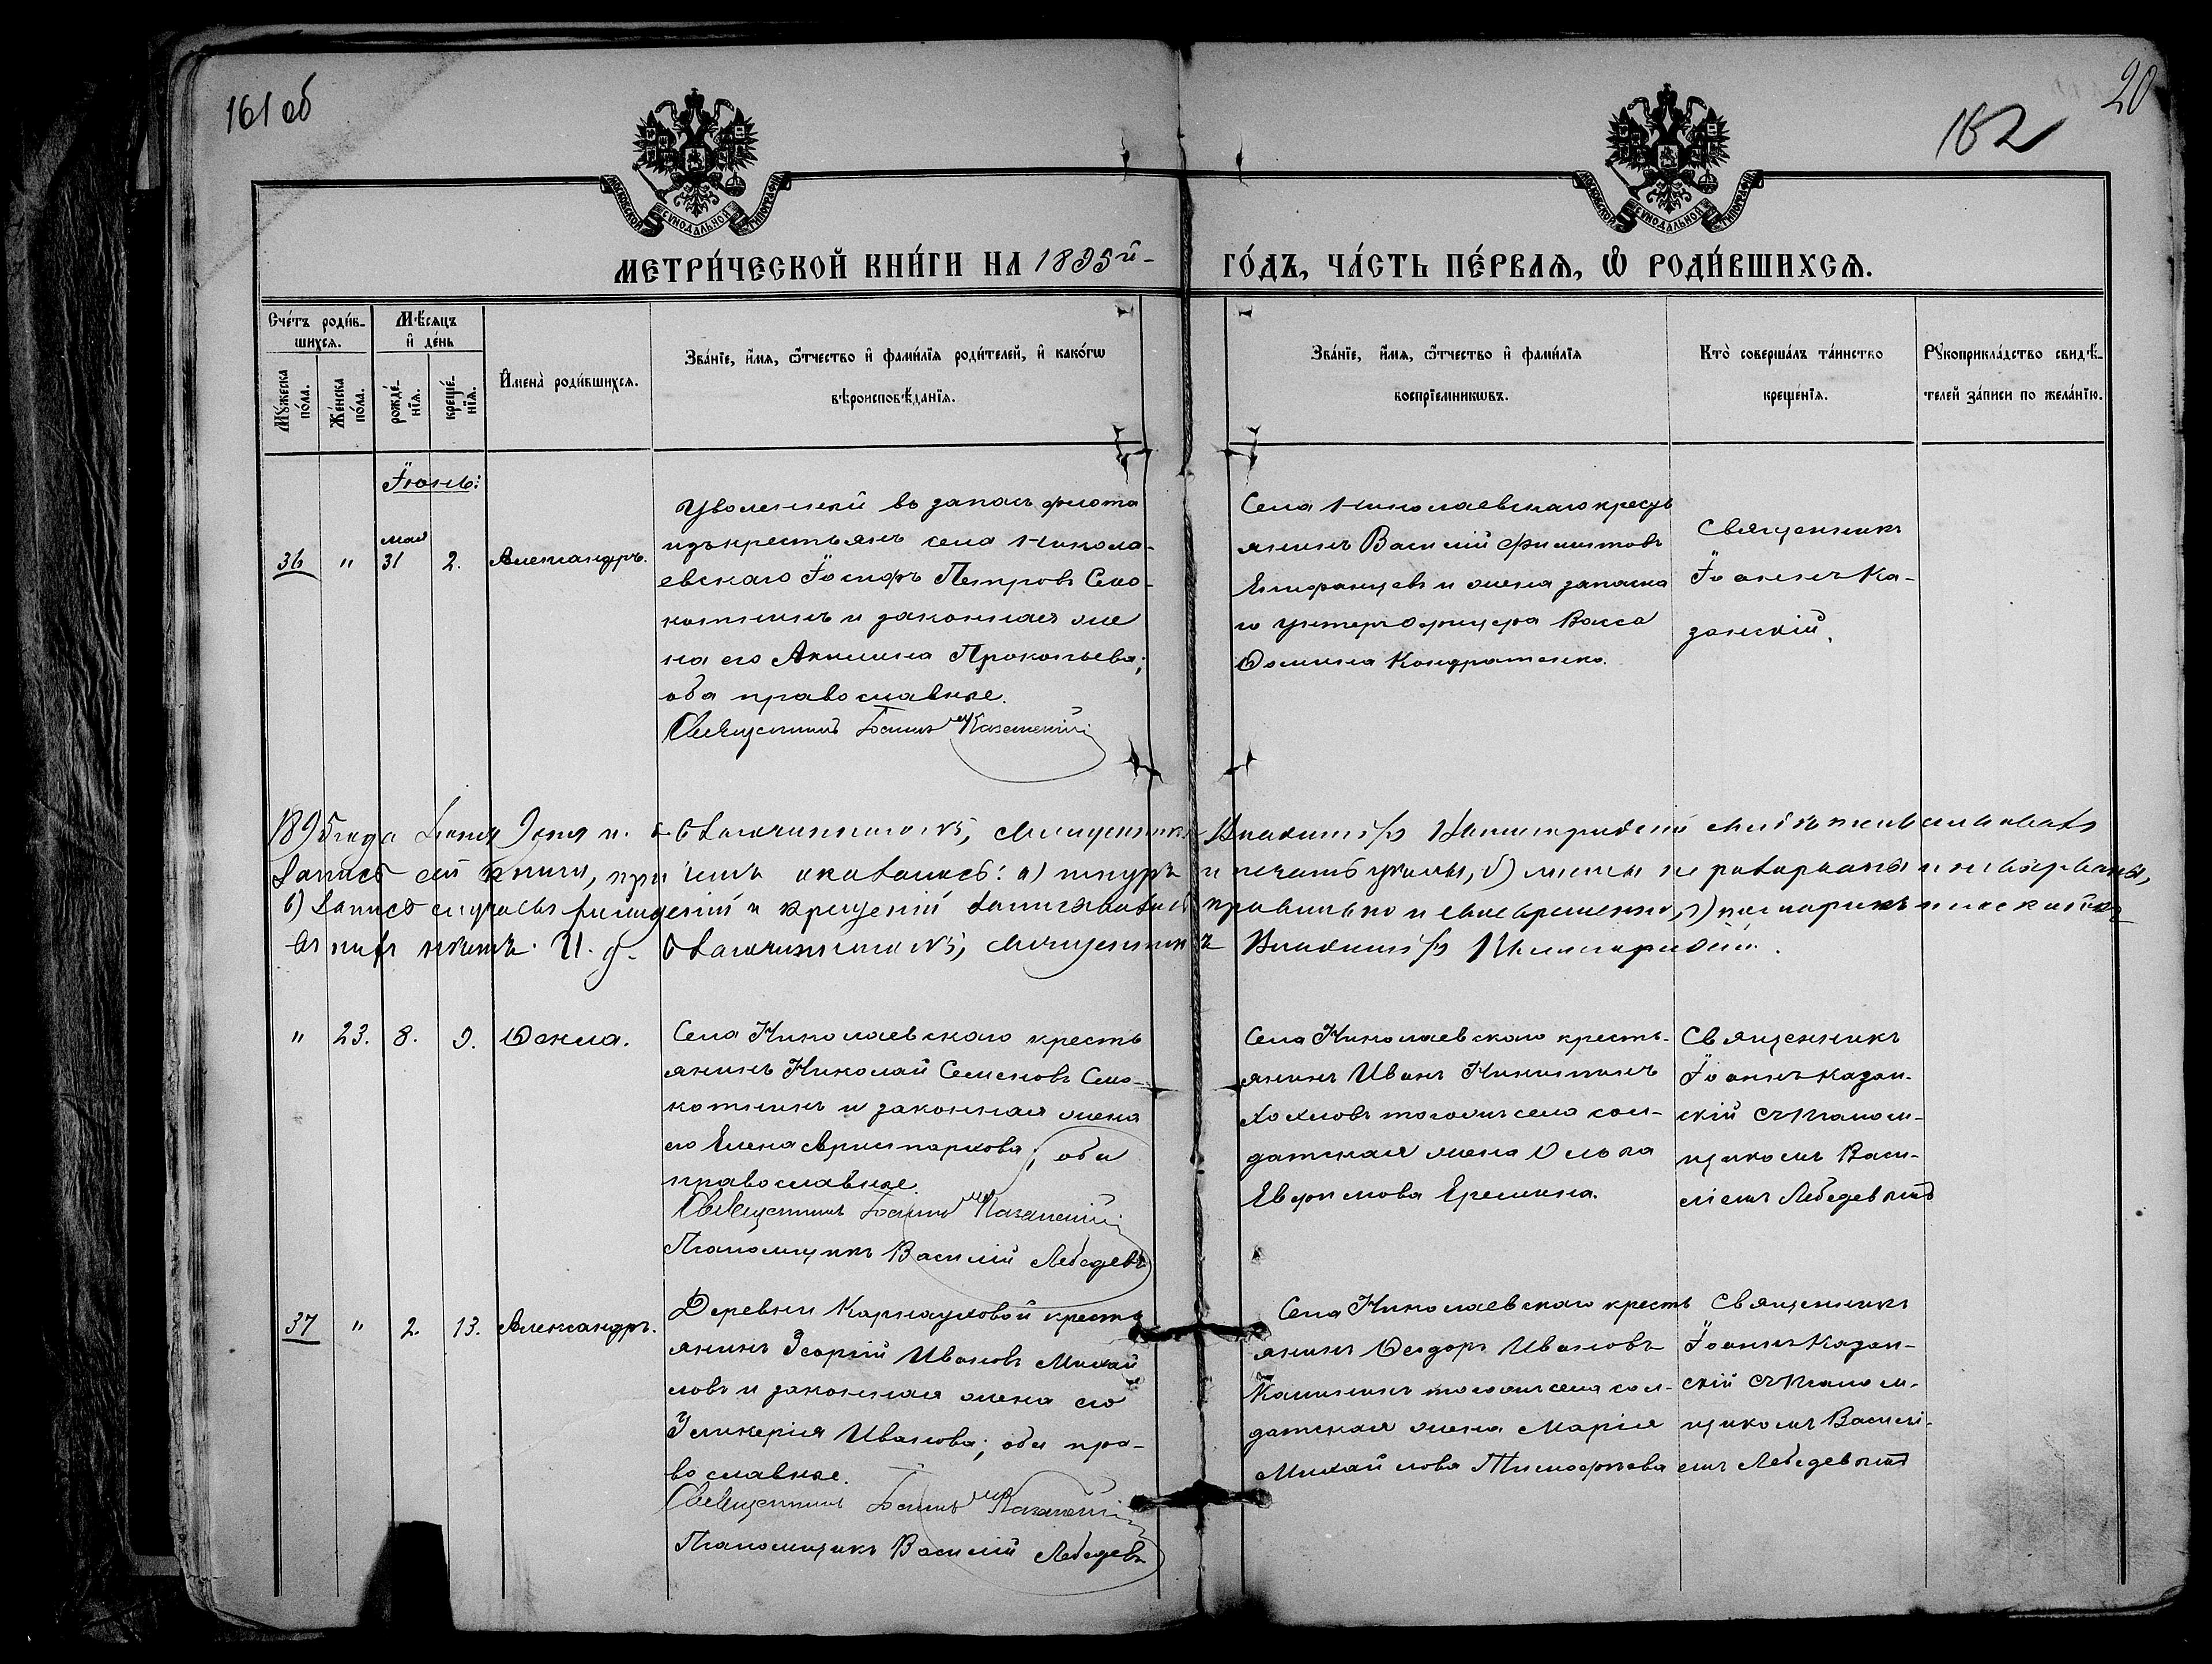 161 об
162
20
МОСКОВСКОЙ СѴНОДАЛЬНОЙ ТИПОГРАФІИ
МОСКОВСКОЙ СѴНОДАЛЬНОЙ ТИПОГРАФІИ
МЕТРИ́ЧЕСКОЙ КНИ́ГИ НА 1895й - ГО́ДЪ, ЧА́СТЬ ПЕ́РВАѦ, Ѡ҆ РОДИ́ВШИХСѦ.
Сче́тъ роди́в-
шихсѧ.
Мꙋ́жеска
по́ла.
Же́нска
по́ла.
Мѣ́сѧцъ
и҆ де́нь
рожде́-
нїѧ.
креще́-
нїѧ.
И҆мена̀ роди́вшихсѧ.
Зва́нїе, и҆́мѧ, ѻ҆́тчество и҆ фами́лїѧ роди́телей, и҆ како́гѡ
вѣроисповѣ́данїѧ.
Зва́нїе, и҆́мѧ, ѻ҆́тчество и҆ фами́лїѧ
воспрїе́мникѡвъ.
Кто̀ соверша́лъ та́инство
креще́нїѧ.
Рꙋкоприкла́дство свидѣ́-
телей за́писи по жела́нїю.
Іюнь:
36 " мая 31 2. Александръ.
Уволенный въ запасъ флота
изъ крестьянъ села Никола-
евскаго Іосифъ Петровъ Смо-
котнинъ и законная же
на его Акилина Прокопьева;
оба православные.
Священникъ Іоаннъ Казанскій
Села Николаевскаго кресть
янинъ Василій Филиповъ
Епифанцевъ и жена запасна
го унтеръ офицера Васса
Ѳомина Кондратенко.
Священникъ
Іоаннъ Ка-
занскій.
1895 года Іюня 9 дня и. д. благочиннаго №5, священникъ Владиміръ свидѣтельствовалъ
запись сей книги, при чемъ оказалось: а) шнуръ и печать цѣлы, б) листы не разорваны и не вырваны,
в) запись случаевъ рожденій и крещеній записывалась правильно и своевременно, г) помарокъ и поскобокъ
въ ней нѣтъ. И. д. благочиннаго №5, священникъ Владиміръ
" 23. 8. 9. Ѳекла.
Села Николаевскаго кресть
янинъ Николай Семеновъ Смо-
котнинъ и законная жена
его Елена Аристархова; оба
православные.
Священникъ Іоаннъ Казанскій
Псаломщикъ Василій Лебедевъ
Села Николаевскаго кресть-
янинъ Иванъ Никитинъ
Хохловъ того же села сол-
датская жена Ольга
Евфимова Еремина.
Священникъ
Іоаннъ Казан-
скій съ псалом-
щикомъ Васи-
ліемъ Лебедевымъ
37 " 2. 13. Александръ.
Деревни Карнауховой кресть
янинъ Георгій Ивановъ Михай
ловъ и законная жена его
Гликерія Иванова; оба пра-
вославные.
Священникъ Іоаннъ Казанскій
Псаломщикъ Василій Лебедевъ
Села Николаевскаго кресть
янинъ Ѳедоръ Ивановъ
Калининъ того же села сол-
датская жена Марія
Михайлова Тимофѣева
Священникъ
Іоаннъ Казан-
скій съ псалом-
щикомъ Василі-
емъ Лебедевымъ